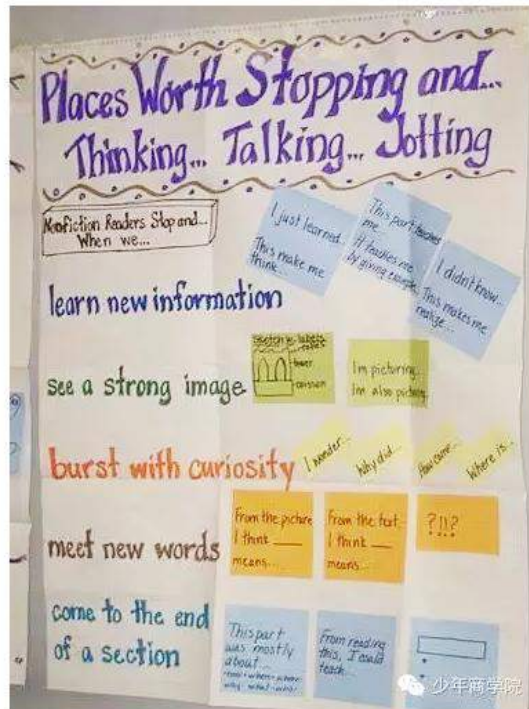 Places Worth Stopping and...
Thinking... Talking... Jotting
Nonfiction Readers Stop and...
When we...
learn new information
I just learned...
This make me
think...
This part teaches
me...
It teaches me
by giving example...
I didn't know...
This makes me
realize...
see a strong image
sketch w/ labels
cables
tower
caisson
I'm picturing...
I'm also picturing
burst with curiosity
I wonder...
Why did...
How come...
Where is...
meet new words
From the picture
I think ____
means...
From the text
I think ____
means...
?!!?
come to the end
of a section
This part
was mostly
about...
how • when • where
why • what • who
From reading
this, I could
teach...
少年商学院